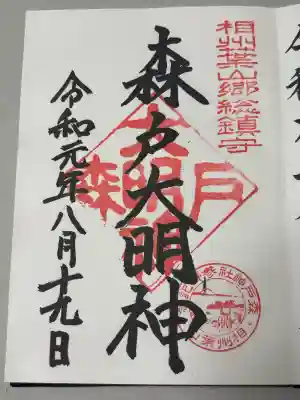 相州葉山郷総鎮守
森戸大明神
令和元年八月十九日
森戸